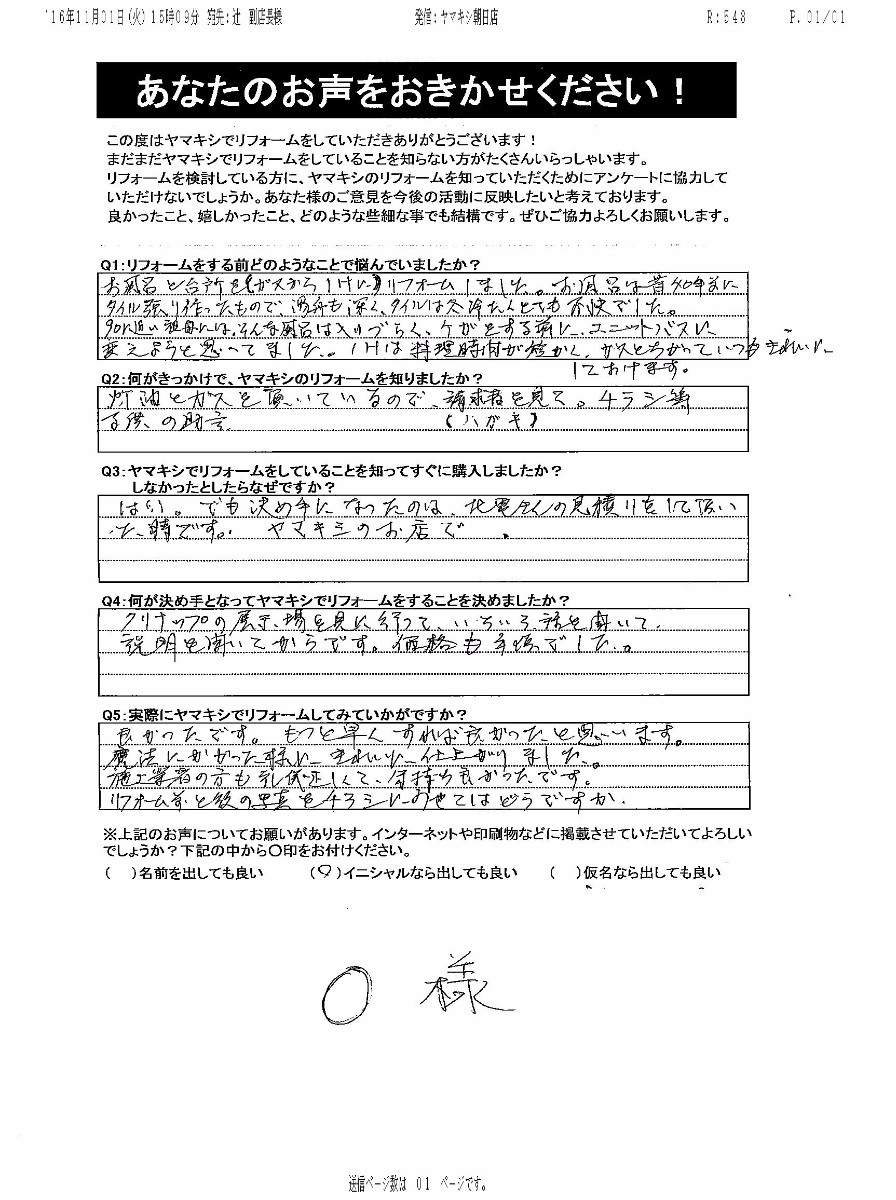 '16年11月01日(火)15時09分 宛先:辻 副店長様 発信:ヤマキシ朝日店 R:548 P.01/01
あなたのお声をおきかせください！
この度はヤマキシでリフォームをしていただきありがとうございます！
まだまだヤマキシでリフォームをしていることを知らない方がたくさんいらっしゃいます。
リフォームを検討している方に、ヤマキシのリフォームを知っていただくためにアンケートに協力して
いただけないでしょうか。あなた様のご意見を今後の活動に反映したいと考えております。
良かったこと、嬉しかったこと、どのような些細な事でも結構です。ぜひご協力よろしくお願いします。
Q1:リフォームをする前どのようなことで悩んでいましたか？
お風呂と台所を(ガスからIHに)リフォームしました。お風呂は昔40年前に
タイル張り作ったもので、湯舟も深く、タイルは冷たくとても不快でした。
90に近い祖母には、そんな風呂は入りづらく、ケガをする前に、ユニットバスに
変えようと思ってました。IHは料理時間が短かく、ガスとちがっていつもきれいに
しておけます。
Q2:何がきっかけで、ヤマキシのリフォームを知りましたか？
灯油とガスを頂いているので、請求書を見て。チラシ等
子供の助言 (ハガキ)
Q3:ヤマキシでリフォームをしていることを知ってすぐに購入しましたか？
しなかったとしたらなぜですか？
はい。でも決め手になったのは、北電さんの見積りをして頂い
た時です。ヤマキシのお店で
Q4:何が決め手となってヤマキシでリフォームをすることを決めましたか？
クリナップの展示場を見に行って、いろいろ話を聞いて、
説明を聞いてからです。価格も手頃でした。
Q5:実際にヤマキシでリフォームしてみていかがですか？
良かったです。もっと早くすれば良かったと思います。
魔法にかかった様にきれいに仕上がりました。
施工業者の方も礼儀正しくて、気持ち良かったです。
リフォーム前と後の写真をチラシにのせてはどうですか。
※上記のお声についてお願いがあります。インターネットや印刷物などに掲載させていただいてよろしい
でしょうか？下記の中から〇印をお付けください。
( )名前を出しても良い (○)イニシャルなら出しても良い ( )仮名なら出しても良い
O 様
送信ページ数は 01 ページです。